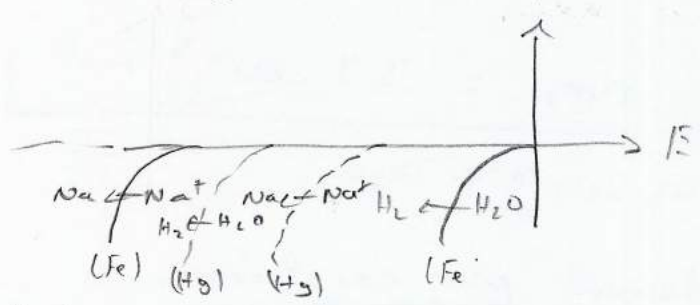 E
Na ← Na⁺ Na ← Na⁺ H₂ ← H₂O
H₂ ← H₂O
(Fe) (Hg) (Hg) (Fe